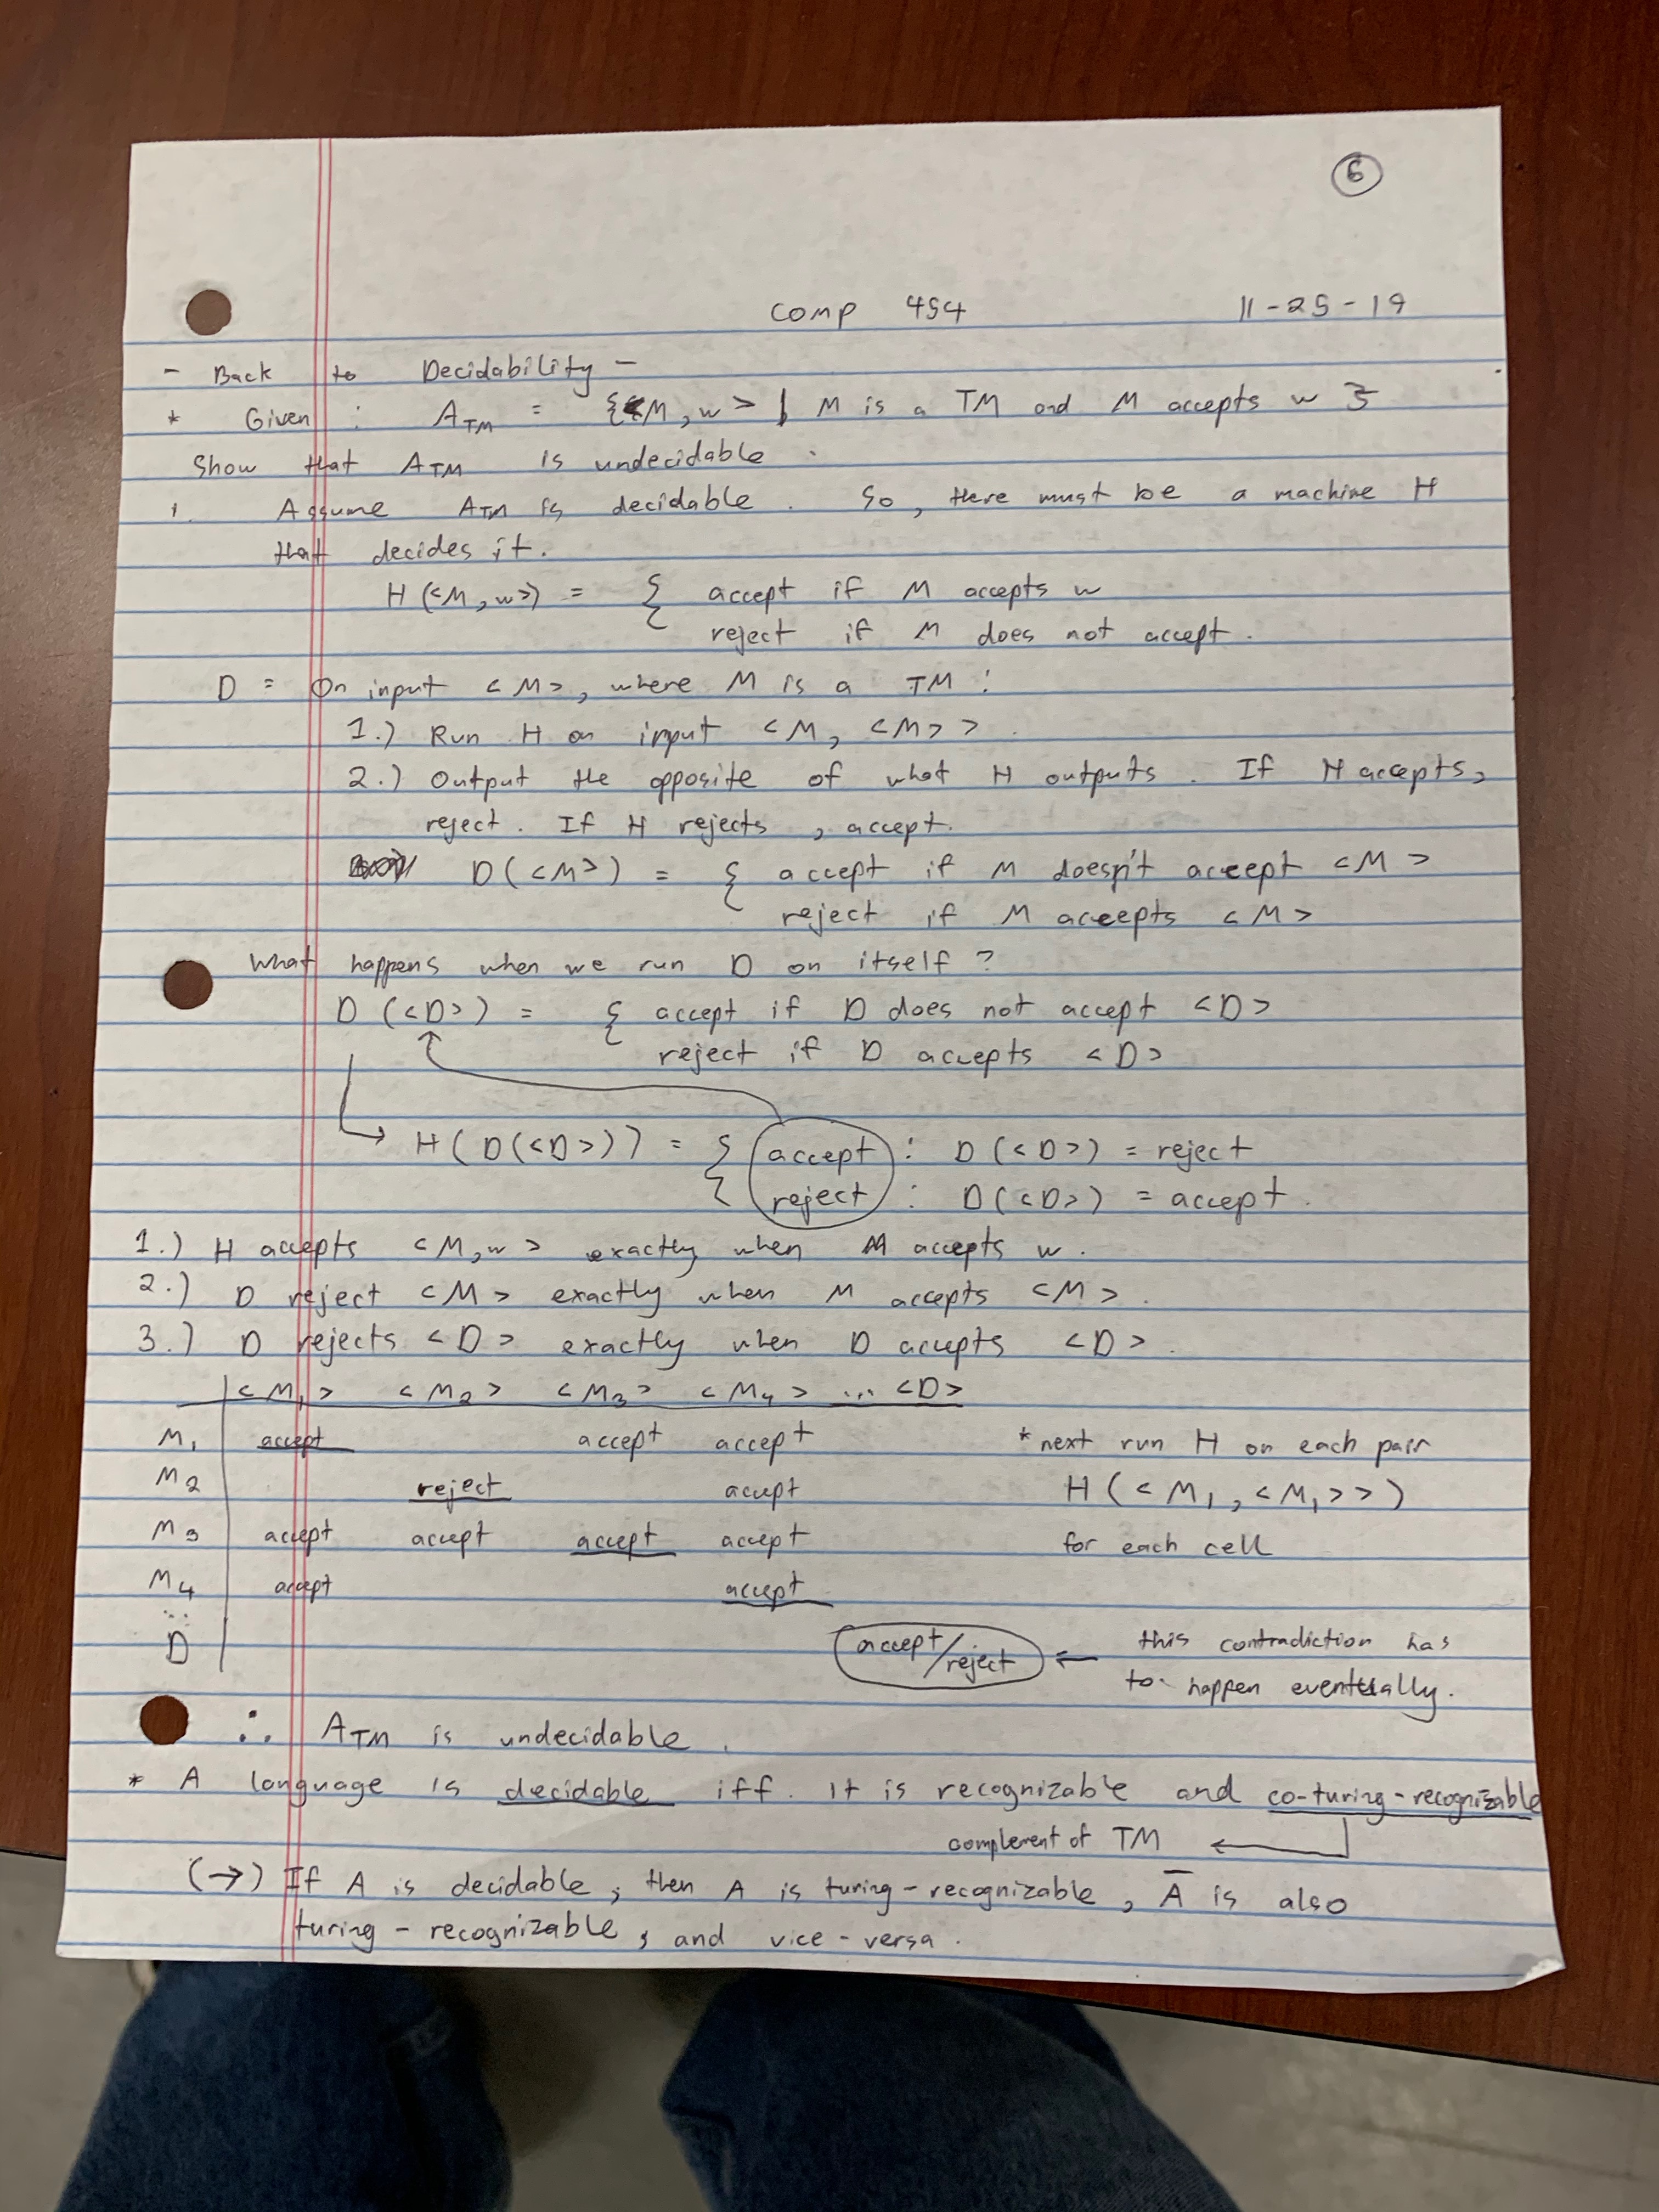 6
COMP 454 11-25-19
- Back to Decidability -
* Given : A_TM = {<M, w> | M is a TM and M accepts w}
Show that A_TM is undecidable.
1. Assume A_TM is decidable. So, there must be a machine H
that decides it.
H(<M, w>) = { accept if M accepts w
reject if M does not accept.
D = On input <M>, where M is a TM:
1.) Run H on input <M, <M>>.
2.) Output the opposite of what H outputs. If H accepts,
reject. If H rejects, accept.
D(<M>) = { accept if M doesn't accept <M>
reject if M accepts <M>
What happens when we run D on itself?
D(<D>) = { accept if D does not accept <D>
reject if D accepts <D>
H(D(<D>)) = { accept : D(<D>) = reject
reject : D(<D>) = accept.
1.) H accepts <M, w> exactly when M accepts w.
2.) D reject <M> exactly when M accepts <M>.
3.) D rejects <D> exactly when D accepts <D>.
<M₁> <M₂> <M₃> <M₄> ... <D>
M₁ accept accept accept * next run H on each pair
M₂ reject accept H(<M₁, <M₁>>)
M₃ accept accept accept accept for each cell
M₄ accept accept
...
D accept/reject ← this contradiction has
to happen eventually.
∴ A_TM is undecidable.
* A language is decidable iff. it is recognizable and co-turing-recognizable
complement of TM ←
(→) If A is decidable, then A is turing-recognizable, A̅ is also
turing-recognizable, and vice-versa.